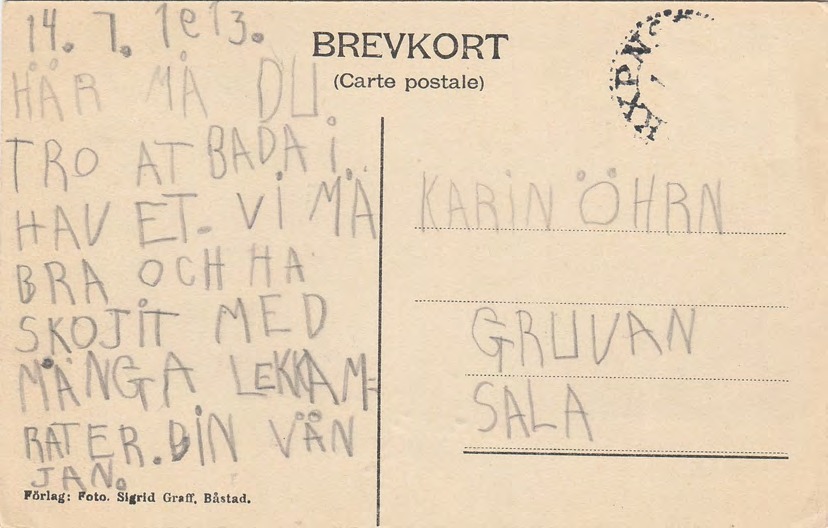 14. 7. 1913.
HÄR MÅ DU
TRO AT BADA i
HAVET. Vi MÅ
BRA OCH HA
SKOJiT MED
MÅNGA LEKKAM=
RATER. DiN VÄN
JAN.
Förlag: Foto. Sigrid Graff, Båstad.
BREVKORT
(Carte postale)
KARiN ÖHRN
GRUVAN
SALA